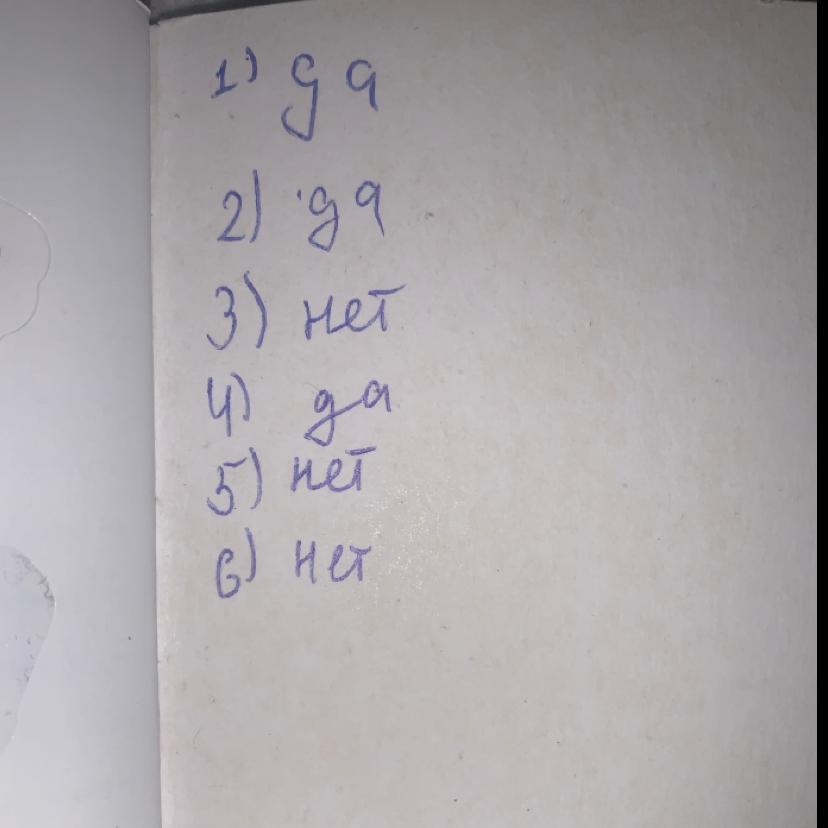 1) да
2) да
3) нет
4) да
5) нет
6) нет